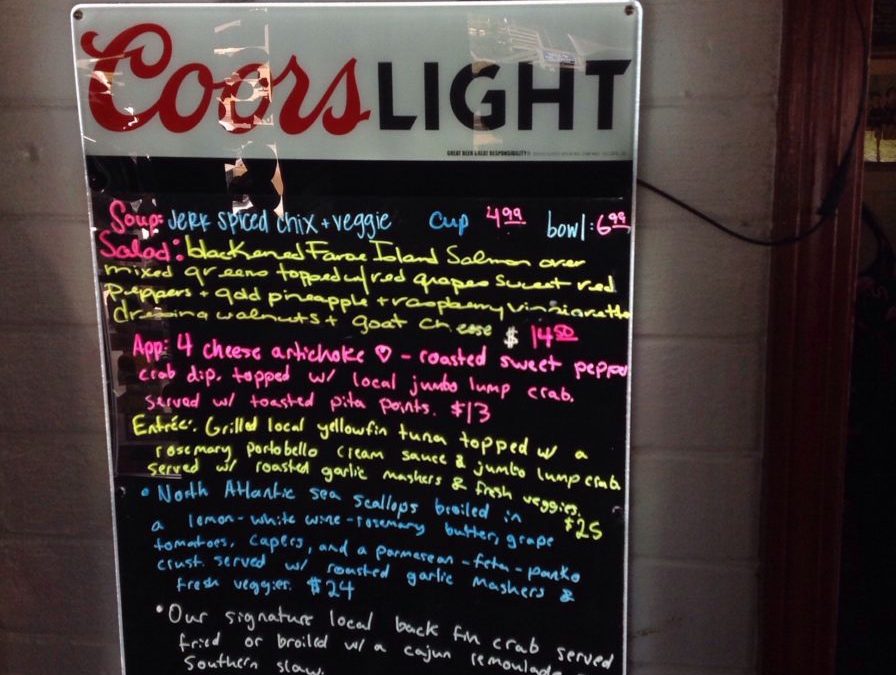 Coors LIGHT
GREAT BEER GREAT RESPONSIBILITY
Soup: Jerk spiced chix + veggie cup 4.99 bowl: 6.99
Salad: blackened Faroe Island Salmon over
mixed greens topped w/ red grapes sweet red
peppers + gold pineapple + raspberry
dressing walnuts + goat cheese $ 14.50
App: 4 cheese artichoke ♡ - roasted sweet pepper
crab dip. topped w/ local jumbo lump crab.
Served w/ toasted pita points. $13
Entrée: Grilled local yellowfin tuna topped w/ a
rosemary portobello cream sauce & jumbo lump crab
served w/ roasted garlic mashers & fresh veggies.
$25
• North Atlantic sea scallops broiled in
a lemon-white wine-rosemary butter, grape
tomatoes, capers, and a parmesean-feta-panko
crust. served w/ roasted garlic mashers &
fresh veggies. $24
• Our signature local back fin crab served
fried or broiled w/ a cajun remoulade
Southern slaw.